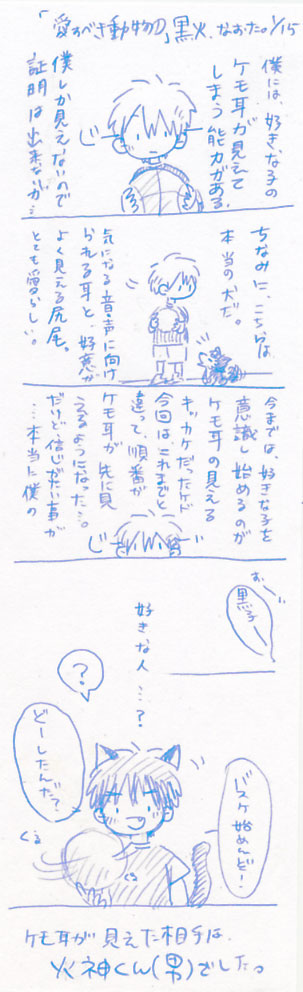 「愛すべき動物の」黒火、なおた。1/15
僕には、好きな子の
ケモ耳が見えて
しまう能力がある。
僕しか見えないので
証明は出来ないが…
じ
ちなみに、こちらは
本当の犬だ。
気になる音・声に向け
られる耳と、好意が
よく見える尻尾。
とても愛らしい。
今までは、好きな子を
意識し始めるのが
ケモ耳の見える
キッカケだったケド
今回は、これまでと
違って、順番が
ケモ耳が先に見
えるようになった…。
だけど信じがたい事が
…本当に僕の
じー
おーい
黒子ー
好きな人…?
?
どーしたんだ?
バスケ始めんど!
くる
くる
ケモ耳が見えた相手は、
火神くん(男)でした。